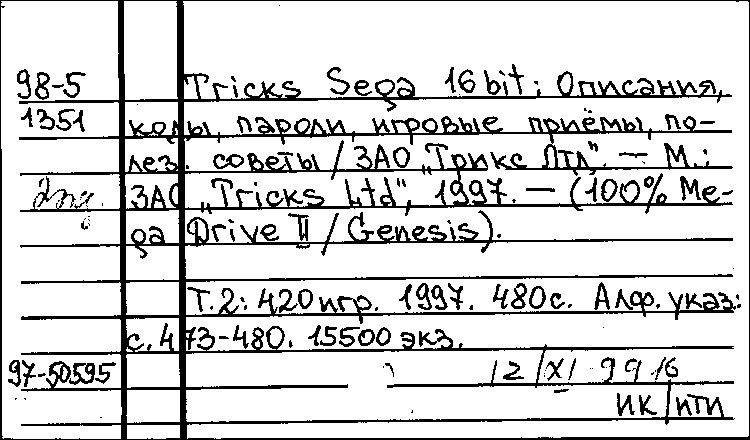 98-5 Tricks Sega 16 bit: Описания,
1351 коды, пароли, игровые приёмы, по-
лез. советы / ЗАО „Трикс Лтд". — М.:
ЗАО „Tricks Ltd", 1997. — (100% Me-
ga Drive II / Genesis).
Т.2: 420 игр. 1997. 480 с. Алф. указ:
с. 473-480. 15500 экз.
97-50595 12/XI 99 16
ИК/ИТИ